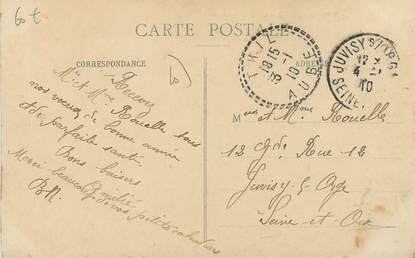 60 €
CARTE POSTALE
CORRESPONDANCE
ADRESSE
THIL
AUBE
18 15
3 - 1
10
JUVISY S/ORGE
SEINE
4 - 1
10
Recevez
Mr et Mme Rouelle tous
nos voeux de bonne année
et de parfaite santé
Bons baisers
Amitié
Merci beaucoup de vos petits calendriers
Mr et Mme Rouelle
12 Gde Rue 12
Juvisy s Orge
Seine et Oise